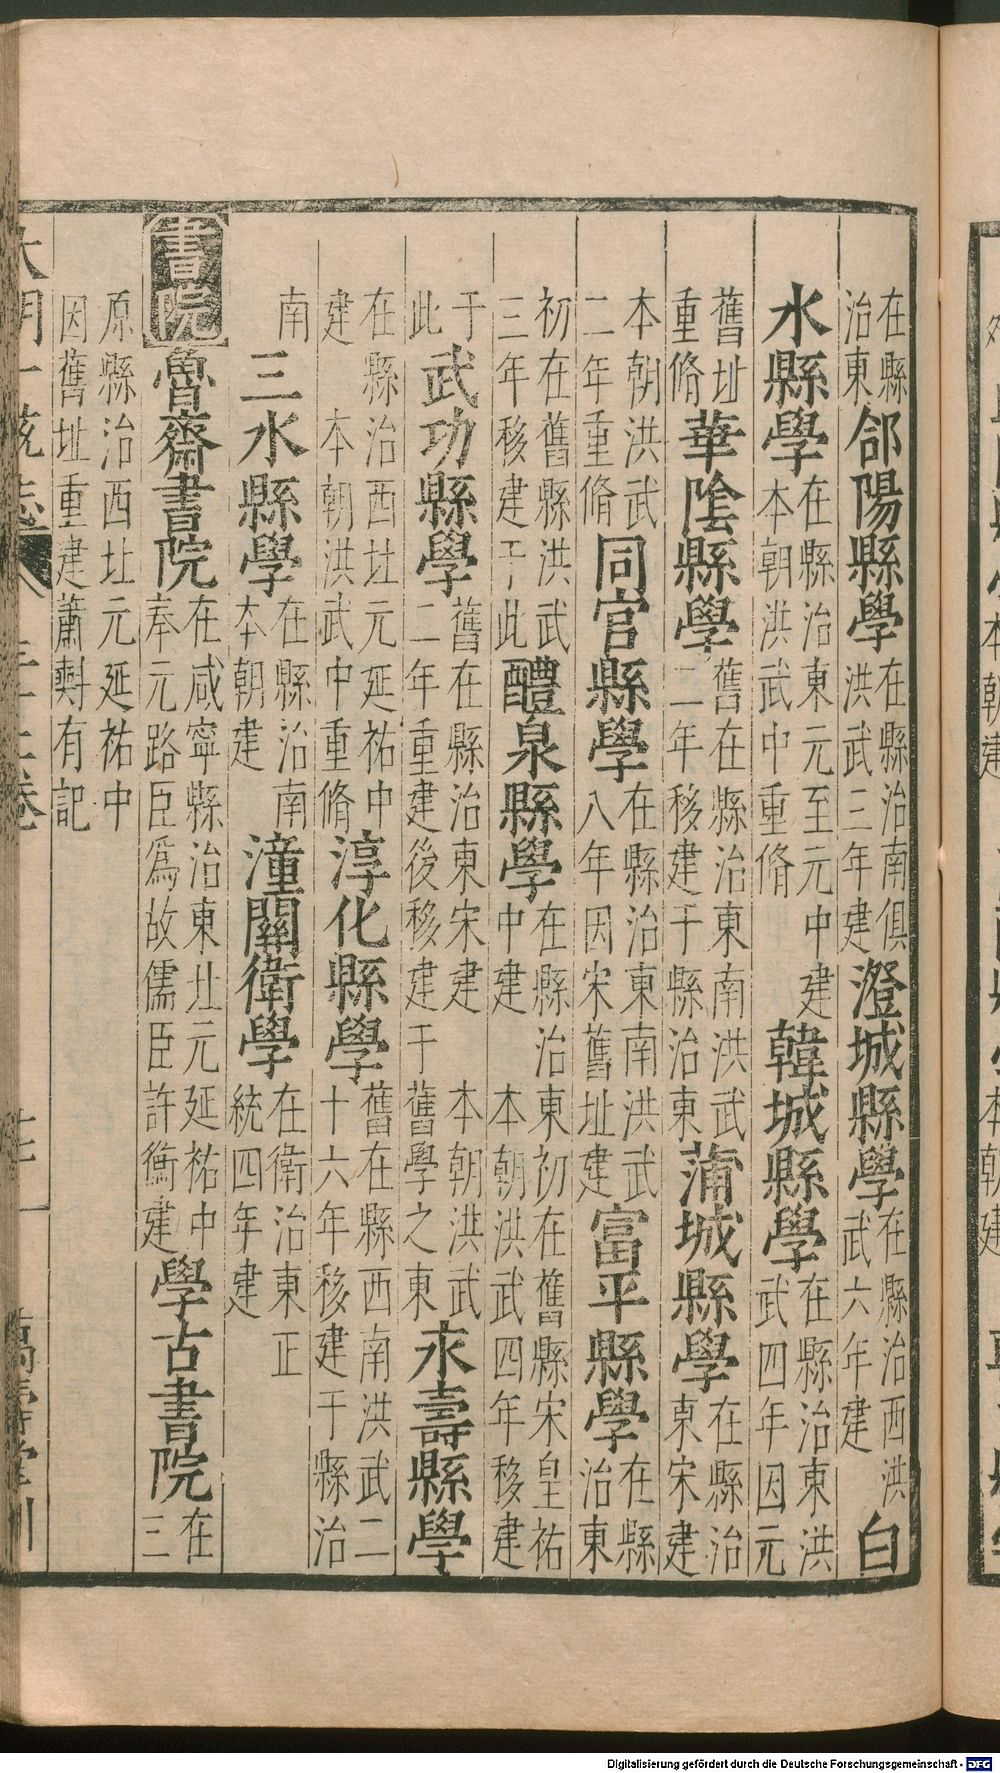 在縣治東郃陽縣學在縣治南俱洪武三年建澄城縣學在縣治西洪武六年建白
水縣學在縣治東元至元中建本朝洪武中重脩韓城縣學在縣治東洪武四年因元
舊址重脩華陰縣學舊在縣治東南洪武三年移建于縣治東蒲城縣學在縣治東宋建
本朝洪武二年重脩同官縣學在縣治東南洪武八年因宋舊址建富平縣學在縣治東
初在舊縣洪武三年移建于此醴泉縣學在縣治東初在舊縣宋皇祐中建本朝洪武四年移建
于此武功縣學舊在縣治東宋建本朝洪武二年重建後移建于舊學之東永壽縣學
在縣治西北元延祐中建本朝洪武中重脩淳化縣學舊在縣西南洪武二十六年移建于縣治
南三水縣學在縣治南本朝建潼關衛學在衛治東正統四年建
書院魯齋書院在咸寧縣治東北元延祐中奉元路臣爲故儒臣許衡建學古書院在三
原縣治西北元延祐中因舊址重建蕭𣂏有記
大明一統志 卷 萬壽堂刊
Digitalisierung gefördert durch die Deutsche Forschungsgemeinschaft - DFG